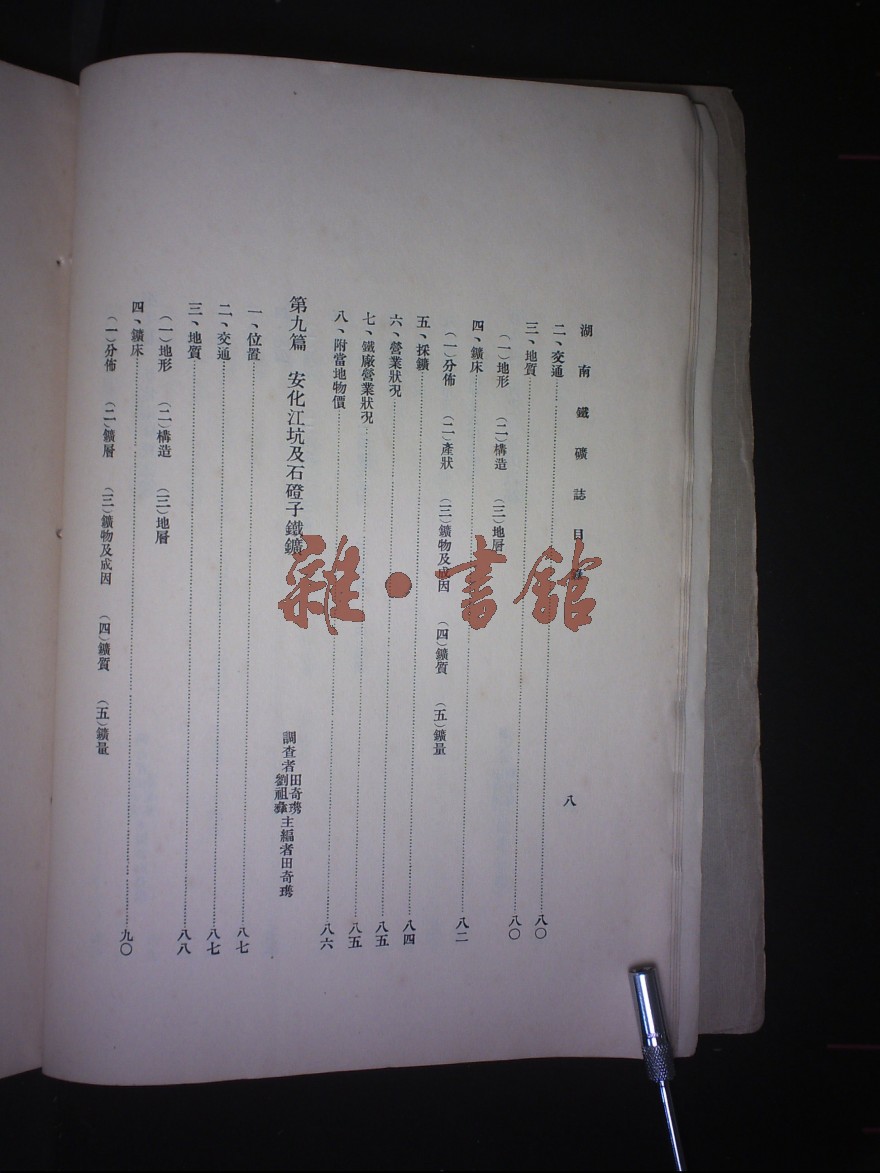 湖南鐵礦誌目錄
八
二、交通……八〇
三、地質……八〇
(一)地形 (二)構造 (三)地層
四、鑛床……八二
(一)分佈 (二)產狀 (三)鑛物及成因 (四)鑛質 (五)鑛量
五、採鑛……八四
六、營業狀况……八五
七、鐵廠營業狀况……八五
八、附當地物價……八六
第九篇 安化江坑及石磴子鐵鑛
調查者田奇㻪劉祖彝主編者田奇㻪
一、位置……八七
二、交通……八七
三、地質……八八
(一)地形 (二)構造 (三)地層
四、鑛床……九〇
(一)分佈 (二)鑛層 (三)鑛物及成因 (四)鑛質 (五)鑛量
雜·書館